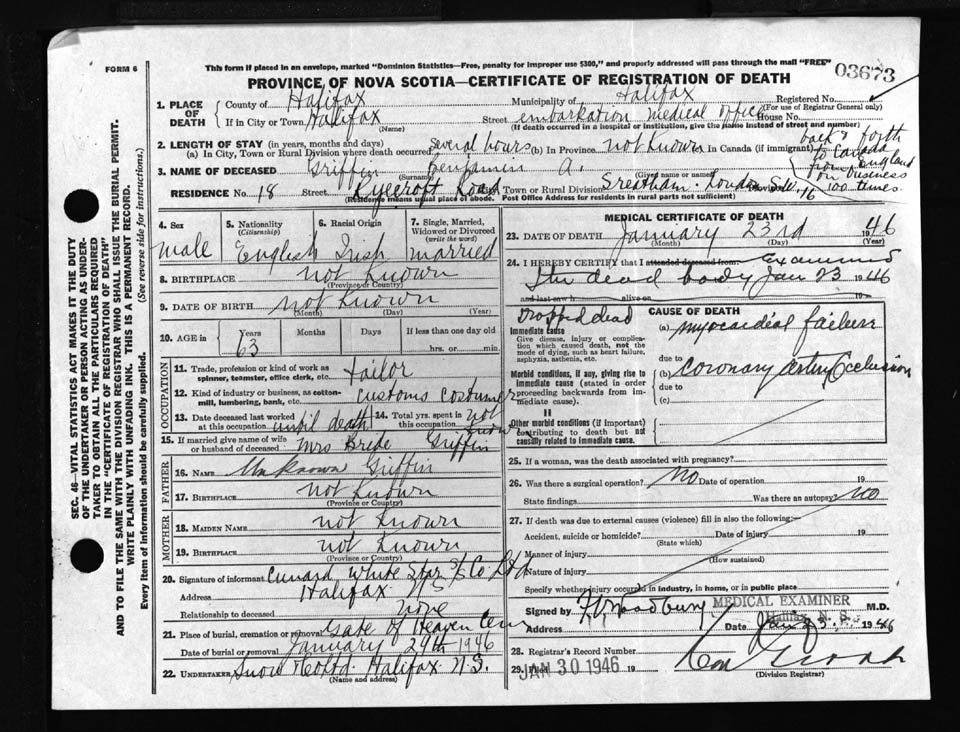 FORM 6
This form if placed in an envelope, marked "Dominion Statistics—Free, penalty for improper use $300," and properly addressed will pass through the mail "FREE"
PROVINCE OF NOVA SCOTIA—CERTIFICATE OF REGISTRATION OF DEATH
03673
1. PLACE OF DEATH County of Halifax Municipality of Halifax Registered No.
(For use of Registrar General only)
If in City or Town Halifax Street embarkation medical office House No.
(Name) (If death occurred in a hospital or institution, give the name instead of street and number)
2. LENGTH OF STAY (in years, months and days)
(a) In City, Town or Rural Division where death occurred several hours (b) In Province not known In Canada (if immigrant) back & forth to Canada from England on business 100 times
3. NAME OF DECEASED Griffin Benjamin A.
(Surname) (Given name or names)
RESIDENCE No. 18 Street Ryecroft Road City Town or Rural Division Streatham. London S.W. 16 Province
(Residence means usual place of abode. Post Office Address for residents in rural parts not sufficient)
4. Sex male
5. Nationality (Citizenship) English
6. Racial Origin Irish
7. Single, Married, Widowed or Divorced (write the word) married
8. BIRTHPLACE not known
(Province or Country)
9. DATE OF BIRTH not known
(Month) (Day) (Year)
10. AGE in Years 63 Months Days If less than one day old hrs. or min.
OCCUPATION
11. Trade, profession or kind of work as spinner, teamster, office clerk, etc. tailor
12. Kind of industry or business, as cotton-mill, lumbering, bank, etc. customs costumer
13. Date deceased last worked at this occupation until death
14. Total yrs. spent in this occupation not known
15. If married give name of wife or husband of deceased Mrs Bride Griffin
FATHER
16. NAME Unknown Griffin
17. BIRTHPLACE not known
(Province or Country)
MOTHER
18. MAIDEN NAME not known
19. BIRTHPLACE not known
(Province or Country)
20. Signature of informant Cunard White Star S/S Co Ltd
Address Halifax NS
Relationship to deceased none
21. Place of burial, cremation or removal Gate of Heaven Cem
Date of burial or removal January 29th 1946
22. UNDERTAKER Snow Co Ltd. Halifax N.S.
(Name and address)
MEDICAL CERTIFICATE OF DEATH
23. DATE OF DEATH January 23rd 1946
(Month) (Day) (Year)
24. I HEREBY CERTIFY that I attended deceased from Examined
the dead body Jan 23 1946
and last saw h alive on 19
Dropped dead
CAUSE OF DEATH
Immediate cause
Give disease, injury or complication which caused death, not the mode of dying, such as heart failure, asphyxia, asthenia, etc.
(a) myocardial failure
due to
Morbid conditions, if any, giving rise to immediate cause (stated in order proceeding backwards from immediate cause).
(b) coronary artery occlusion
due to
(c)
II
Other morbid conditions (if important) contributing to death but not causally related to immediate cause.
25. If a woman, was the death associated with pregnancy?
26. Was there a surgical operation? No Date of operation 19
State findings Was there an autopsy? No
27. If death was due to external causes (violence) fill in also the following:—
Accident, suicide or homicide? Date of injury 19
(State which)
Manner of injury
(How sustained)
Nature of injury
Specify whether injury occurred in industry, in home, or in public place
Signed by Woodbury MEDICAL EXAMINER M.D.
Address Halifax N. S. Date 1946
28. Registrar's Record Number
29. JAN 30 1946 19
(Division Registrar)
SEC. 46—VITAL STATISTICS ACT MAKES IT THE DUTY OF THE UNDERTAKER OR PERSON ACTING AS UNDERTAKER TO OBTAIN ALL THE PARTICULARS REQUIRED IN THE "CERTIFICATE OF REGISTRATION OF DEATH" AND TO FILE THE SAME WITH THE DIVISION REGISTRAR WHO SHALL ISSUE THE BURIAL PERMIT.
WRITE PLAINLY WITH UNFADING INK. THIS IS A PERMANENT RECORD.
Every item of information should be carefully supplied. (See reverse side for instructions.)